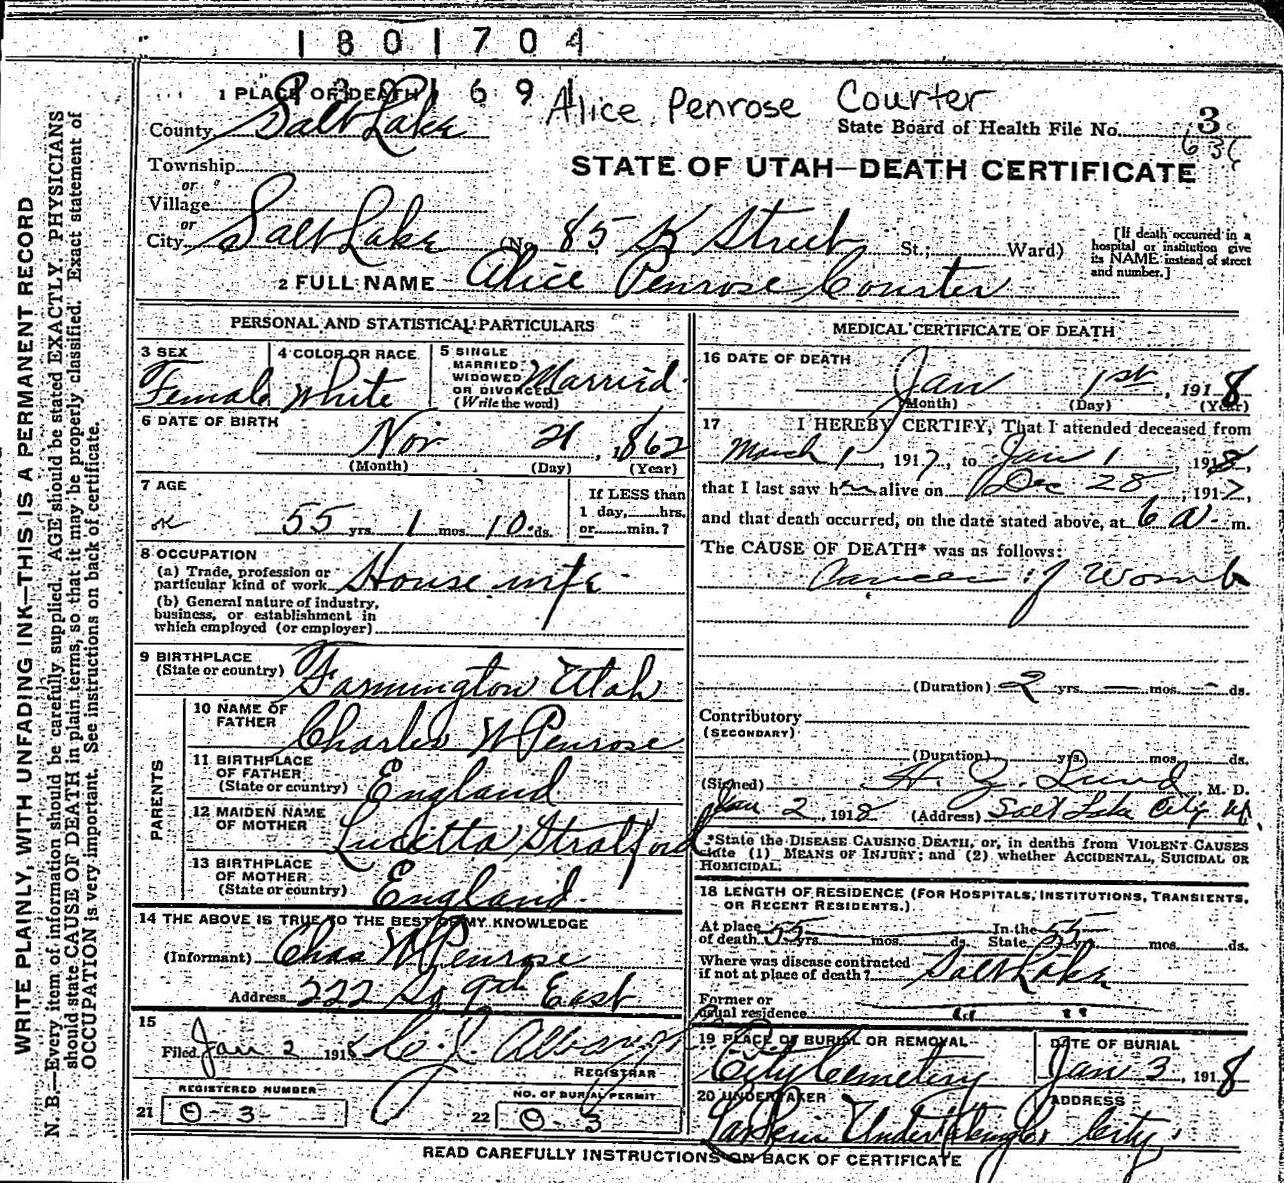 1801704
1 PLACE OF DEATH
Alice Penrose Courter
County Salt Lake
State Board of Health File No. 3
Township
STATE OF UTAH—DEATH CERTIFICATE
or
Village
or
City Salt Lake (No. 85 K Street St.; Ward)
[If death occurred in a
hospital or institution give
its NAME instead of street
and number.]
2 FULL NAME Alice Penrose Courter
PERSONAL AND STATISTICAL PARTICULARS
3 SEX
Female
4 COLOR OR RACE
White
5 SINGLE
MARRIED
WIDOWED
OR DIVORCED
(Write the word)
Married
6 DATE OF BIRTH
Nov 21, 1862
(Month) (Day) (Year)
7 AGE
55 yrs. 1 mos. 10 ds.
If LESS than
1 day, hrs.
or min.?
8 OCCUPATION
(a) Trade, profession or
particular kind of work House wife
(b) General nature of industry,
business, or establishment in
which employed (or employer)
9 BIRTHPLACE
(State or country) Farmington Utah
PARENTS
10 NAME OF
FATHER Charles W Penrose
11 BIRTHPLACE
OF FATHER
(State or country) England
12 MAIDEN NAME
OF MOTHER Lucetta Stratford
13 BIRTHPLACE
OF MOTHER
(State or country) England
14 THE ABOVE IS TRUE TO THE BEST OF MY KNOWLEDGE
(Informant) Chas W Penrose
Address 222 So 9th East
15
Filed Jan 2 1918
REGISTRAR
REGISTERED NUMBER
21 0-3
NO. OF BURIAL PERMIT
22 0-3
MEDICAL CERTIFICATE OF DEATH
16 DATE OF DEATH
Jan 1st, 1918
(Month) (Day) (Year)
17 I HEREBY CERTIFY, That I attended deceased from
March 1, 1917, to Jan 1 1918,
that I last saw her alive on Dec 28, 1917,
and that death occurred, on the date stated above, at 6 a. m.
The CAUSE OF DEATH* was as follows:
Cancer of Womb
(Duration) 2 yrs. — mos. — ds.
Contributory
(SECONDARY)
(Duration) yrs. mos. ds.
(Signed) H. Z. Lund, M. D.
Jan 2, 1918 (Address) Salt Lake City Ut.
*State the DISEASE CAUSING DEATH, or, in deaths from VIOLENT CAUSES
state (1) MEANS OF INJURY; and (2) whether ACCIDENTAL, SUICIDAL OR
HOMICIDAL.
18 LENGTH OF RESIDENCE (FOR HOSPITALS, INSTITUTIONS, TRANSIENTS,
OR RECENT RESIDENTS.)
At place
of death 55 yrs. mos. ds.
In the
State 55 yrs. mos. ds.
Where was disease contracted
if not at place of death? Salt Lake
Former or
usual residence " "
19 PLACE OF BURIAL OR REMOVAL
City Cemetery
DATE OF BURIAL
Jan 3, 1918
20 UNDERTAKER
Larkin Undertaking Co
ADDRESS
City
READ CAREFULLY INSTRUCTIONS ON BACK OF CERTIFICATE
WRITE PLAINLY, WITH UNFADING INK—THIS IS A PERMANENT RECORD
N. B.—Every item of information should be carefully supplied. AGE should be stated EXACTLY. PHYSICIANS
should state CAUSE OF DEATH in plain terms, so that it may be properly classified. Exact statement of
OCCUPATION is very important. See instructions on back of certificate.